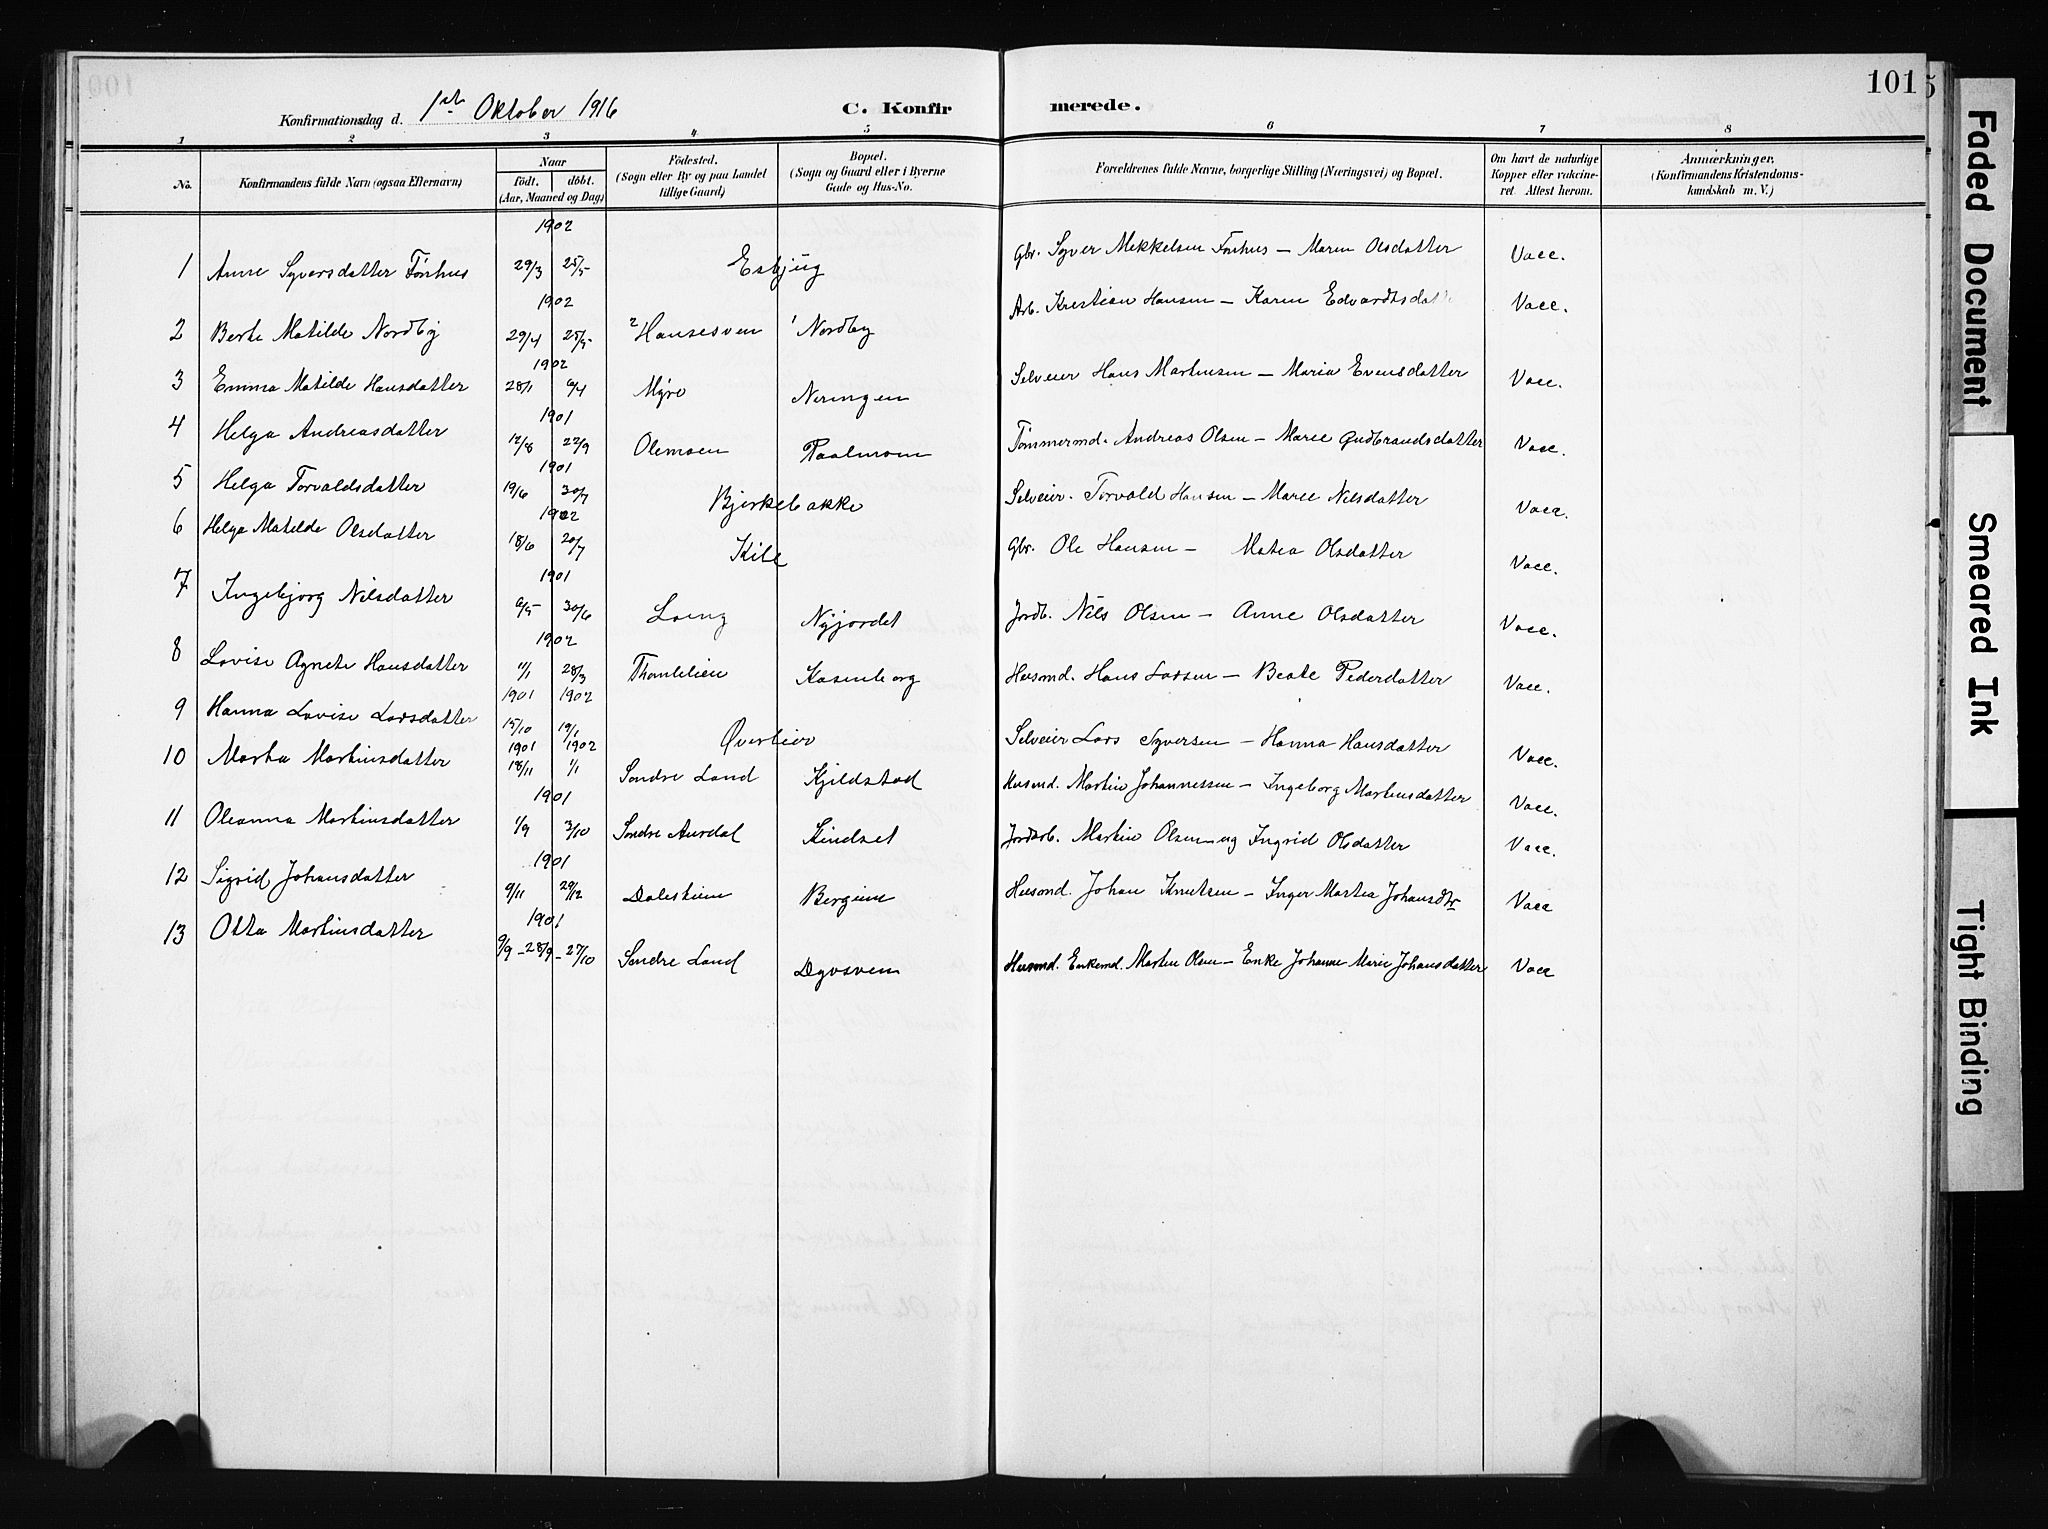 101
Konfirmationsdag d. 1ste Oktober 1916 C. Konfir merede.
1 2 3 4 5 6 7 8
No. Konfirmandens fulde Navn (ogsaa Efternavn) Naar födt. döbt. (Aar, Maaned og Dag) Födested. (Sogn eller By og paa Landet tillige Gaard) Bopæl. (Sogn og Gaard eller i Byerne Gade og Hus-No. Forældrenes fulde Navne, borgerlige Stilling (Næringsvei) og Bopæl. Om havt de naturlige Kopper eller vakcineret. Attest herom. Anmærkninger. (Konfirmandens Kristendomskundskab m. V.)
1902
1 Anne Syversdatter Fönhus 29/3 25/5 Esbjug Gbr. Syver Mikkelsen Fönhus — Maren Olsdatter Vacc.
1902
2 Berte Matilde Nordby 29/4 25/5 Hansesven Nordby Arb. Kristian Hansen — Karen Edvardtsdatt Vacc.
1902
3 Emma Matilde Hansdatter 28/1 6/4 Myre Neringen Selveier Hans Martinsen — Maria Evensdatter Vacc.
1901
4 Helga Andreasdatter 12/8 22/9 Olemoen Paalmoen Tömmermd. Andreas Olsen — Maree Gudbrandsdatter Vacc.
1901
5 Helga Torvaldsdatter 19/6 30/7 Bjerkebakke Selveier. Torvald Hansen — Maree Nilsdatter Vacc.
1902
6 Helga Matilde Olsdatter 18/6 20/7 Kile Gbr. Ole Hansen — Matea Olsdatter Vacc.
1901
7 Ingebjorg Nilsdatter 6/5 30/6 Loeng Nyjordet Jordb. Nils Olsen — Anne Olsdatter Vacc.
1902
8 Lovise Agnete Hansdatter 11/1 28/3 Thomlelien Kasenborg Husmd. Hans Larsen — Beate Pedersdatter Vacc.
1901 1902
9 Hanna Lovise Larsdatter 15/10 19/1 Øverlier Selveier Lars Syversen — Hanna Hansdatter Vacc.
1901 1902
10 Marta Martinsdatter 18/11 1/1 Söndre Land Kjeldstad Husmd. Martin Johannessen — Ingeborg Martinsdatter Vacc.
1901
11 Oleanna Martinsdatter 1/9 3/10 Söndre Aurdal Skindset Jordarb. Martin Olsen og Ingrid Olsdatter Vacc.
1901
12 Sigrid Johansdatter 9/11 29/12 Dalesteien Bergene Husmd. Johan Knutsen — Inger Martea Johansdtr Vacc
1901
13 Otta Martinsdatter 9/9 - 28/9 - 27/10 Söndre Land Dyvsven Husmd. Enkemd. Martin Olsen — Enke Johanne Marie Johansdatter Vacc
Faded Document
Smeared Ink
Tight Binding